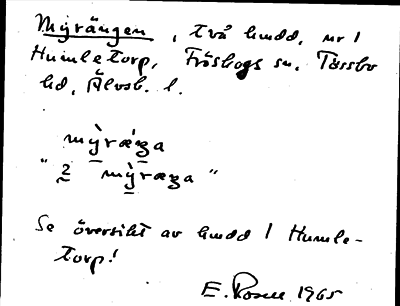 Myrängen, två hmdd, nr 1
Humletorp, Fröskogs sn. Tössbo
hd, Älvsb. l.
mỳræŋa
"2 mỳræŋa"
Se översikt av hmdd 1 Humle-
torp!
E. Rosell 1965